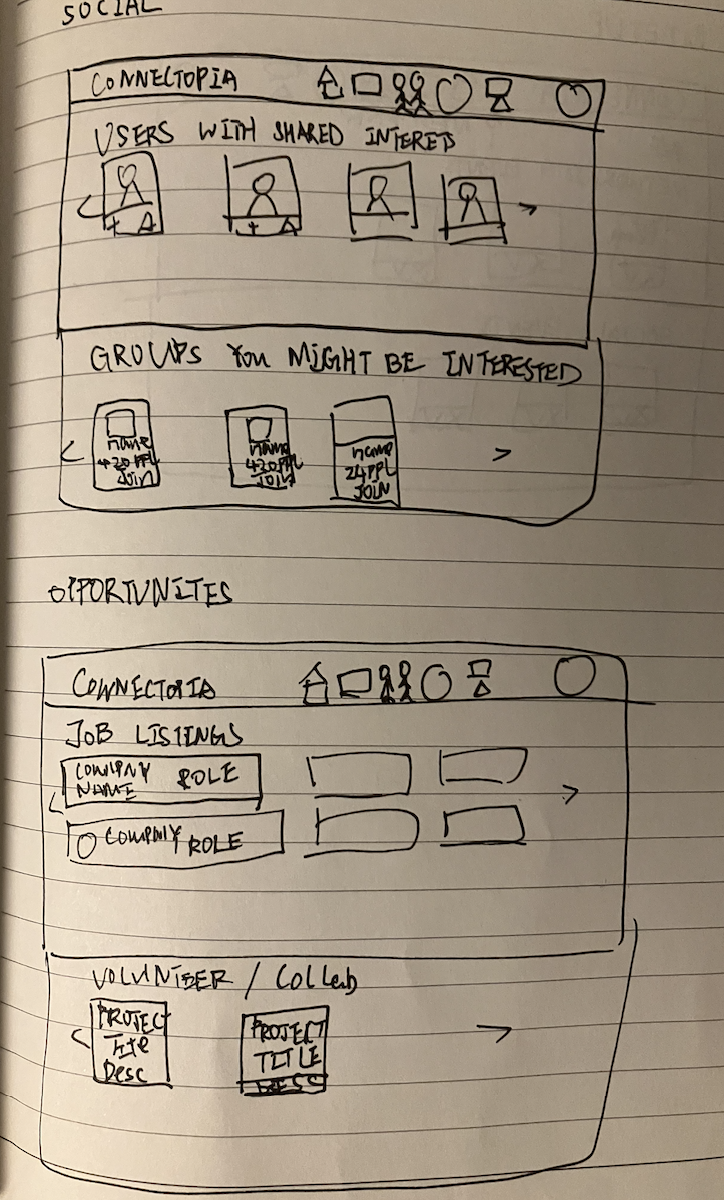 SOCIAL
CONNECTOPIA
USERS WITH SHARED INTERETS
+ A
+ A
GROUPS YOU MIGHT BE INTERESTED
name
420 PPL
Join
name
420 PPL
JOIN
name
24 PPL
JOIN
OPPORTUNITES
CONNECTOPIA
JOB LISTINGS
COMPANY NAME ROLE
COMPANY ROLE
VOLUNTEER / Collab
PROJECT
Title
Desc
PROJECT
TITLE
DESC